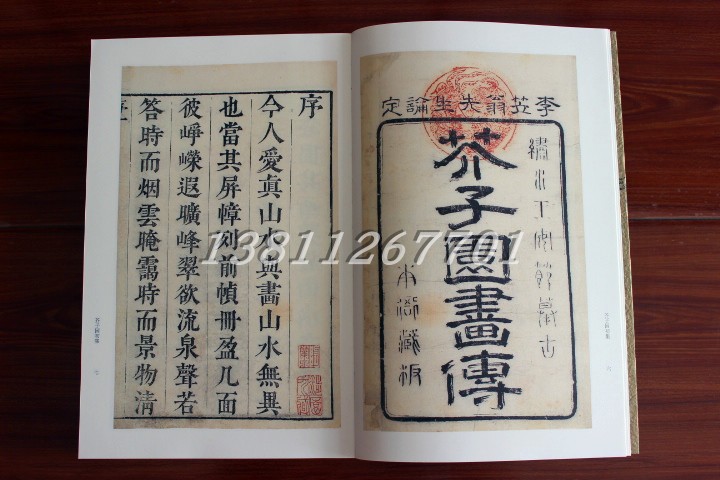 李笠翁先生論定
繡水王安節摹古
芥子園畫傳
本衙藏板
序
今人愛真山水與畫山水無異
也當其屏幛列前幀冊盈几面
彼崢嶸遐曠峰翠欲流泉聲若
答時而烟雲晻靄時而景物清
13811267701